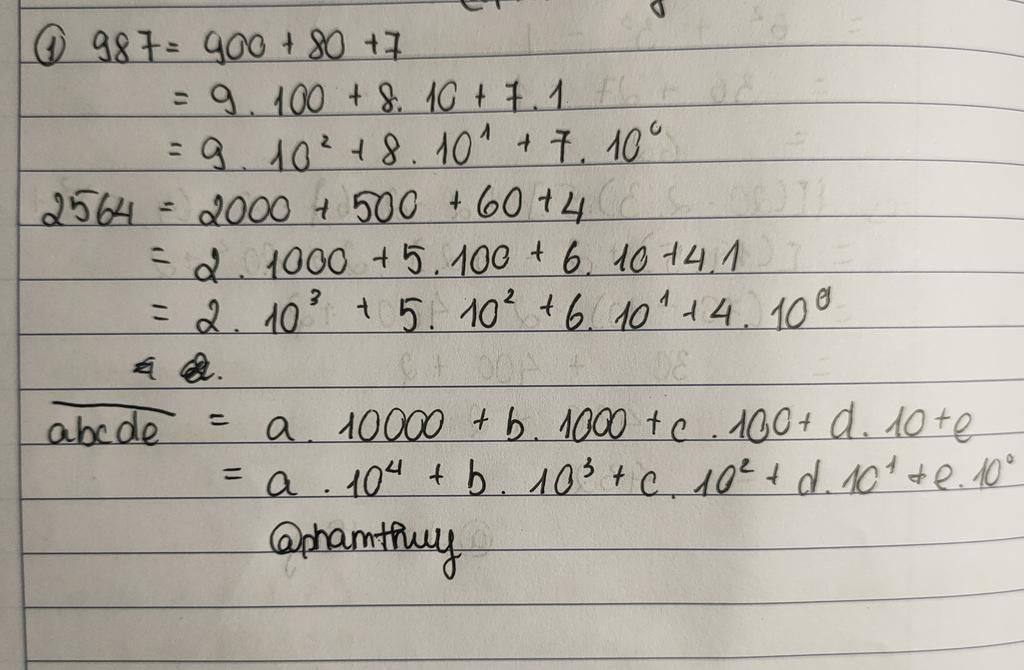 ① 987 = 900 + 80 + 7
= 9 . 100 + 8 . 10 + 7 . 1
= 9 . 10² + 8 . 10¹ + 7 . 10⁰
2564 = 2000 + 500 + 60 + 4
= 2 . 1000 + 5 . 100 + 6 . 10 + 4 . 1
= 2 . 10³ + 5 . 10² + 6 . 10¹ + 4 . 10⁰
a̅b̅c̅d̅e̅ = a . 10000 + b . 1000 + c . 100 + d . 10 + e
= a . 10⁴ + b . 10³ + c . 10² + d . 10¹ + e . 10⁰
@phamthuy